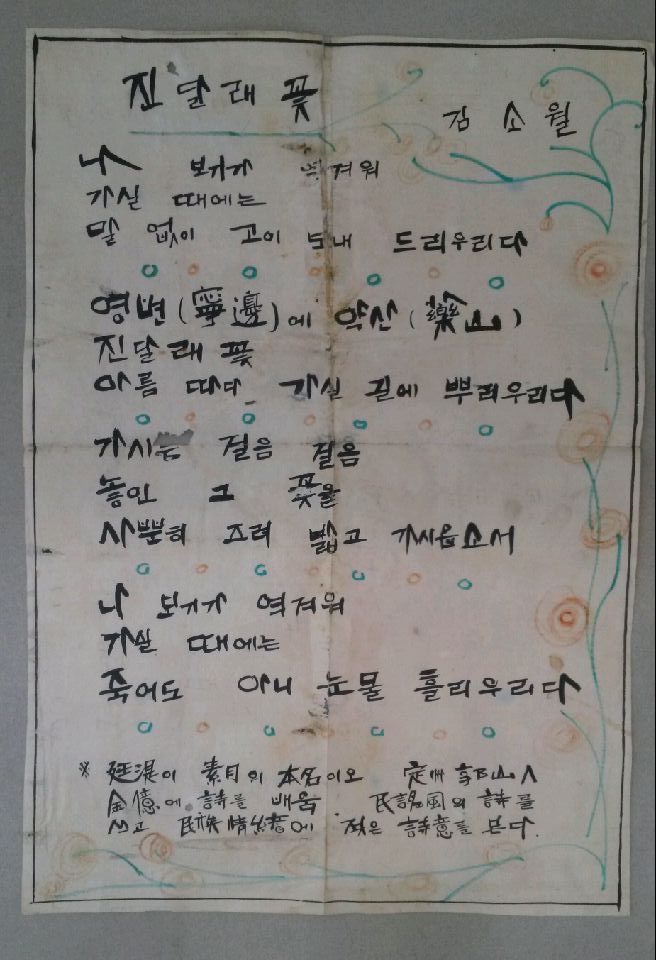 진달래 꽃
김 소 월
나 보기가 역겨워
가실 때에는
말 없이 고이 보내 드리우리다
영변(寧邊)에 약산(藥山)
진달래 꽃
아름 따다 가실 길에 뿌려우리다
가시는 걸음 걸음
놓인 그 꽃을
사뿐히 즈려 밟고 가시옵소서
나 보기가 역겨워
가실 때에는
죽어도 아니 눈물 흘리우리다
※ 廷湜이 素月의 本名이오 定州 郭山人
金億에 詩를 배움 民謠風의 詩를
쓰고 民族情緖에 詩意를 쓴다.